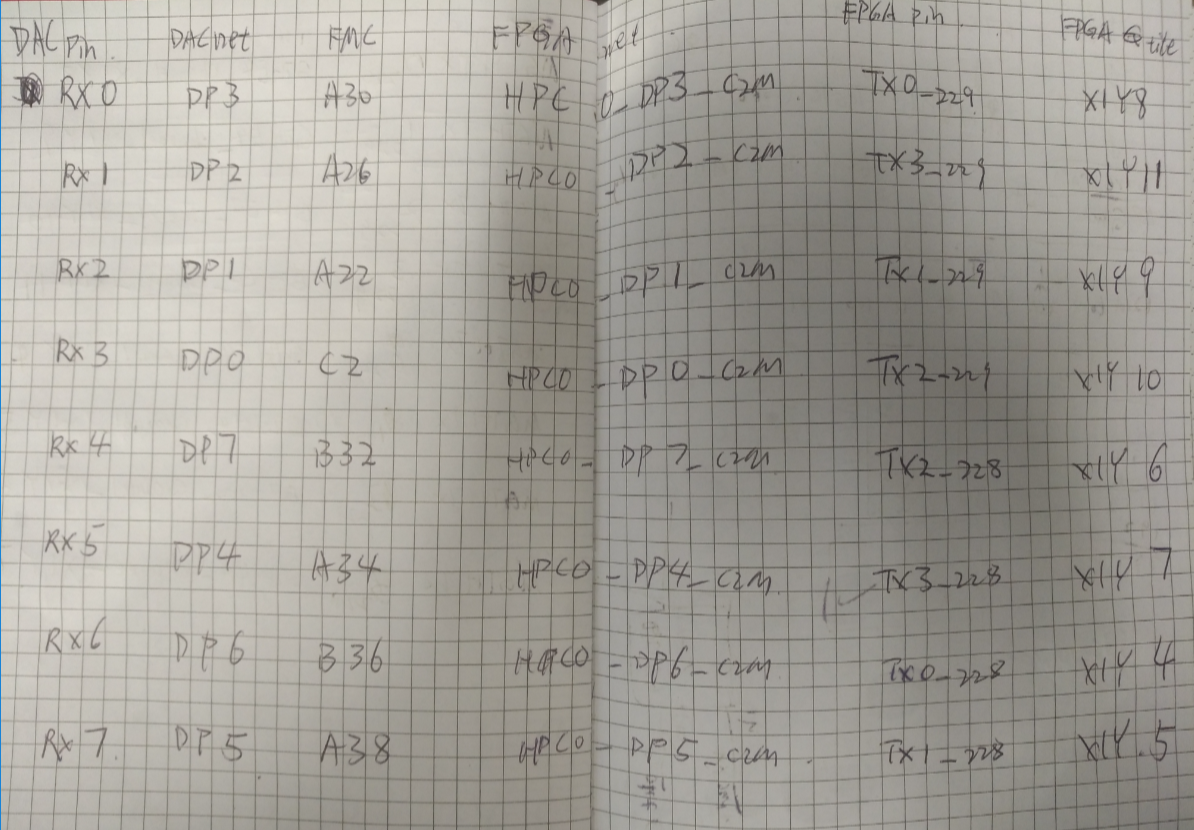 DAC Pin DAC net FMC FPGA net FPGA pin FPGA tile
RX0 DP3 A30 HPC0_DP3_C2M TX0_229 X1Y8
RX1 DP2 A26 HPC0_DP2_C2M TX3_229 X1Y11
RX2 DP1 A22 HPC0_DP1_C2M TX1_229 X1Y9
RX3 DP0 C2 HPC0_DP0_C2M TX2_229 X1Y10
RX4 DP7 B32 HPC0_DP7_C2M TX2_228 X1Y6
RX5 DP4 A34 HPC0_DP4_C2M TX3_228 X1Y7
RX6 DP6 B36 HPC0_DP6_C2M TX0_228 X1Y4
RX7 DP5 A38 HPC0_DP5_C2M TX1_228 X1Y5